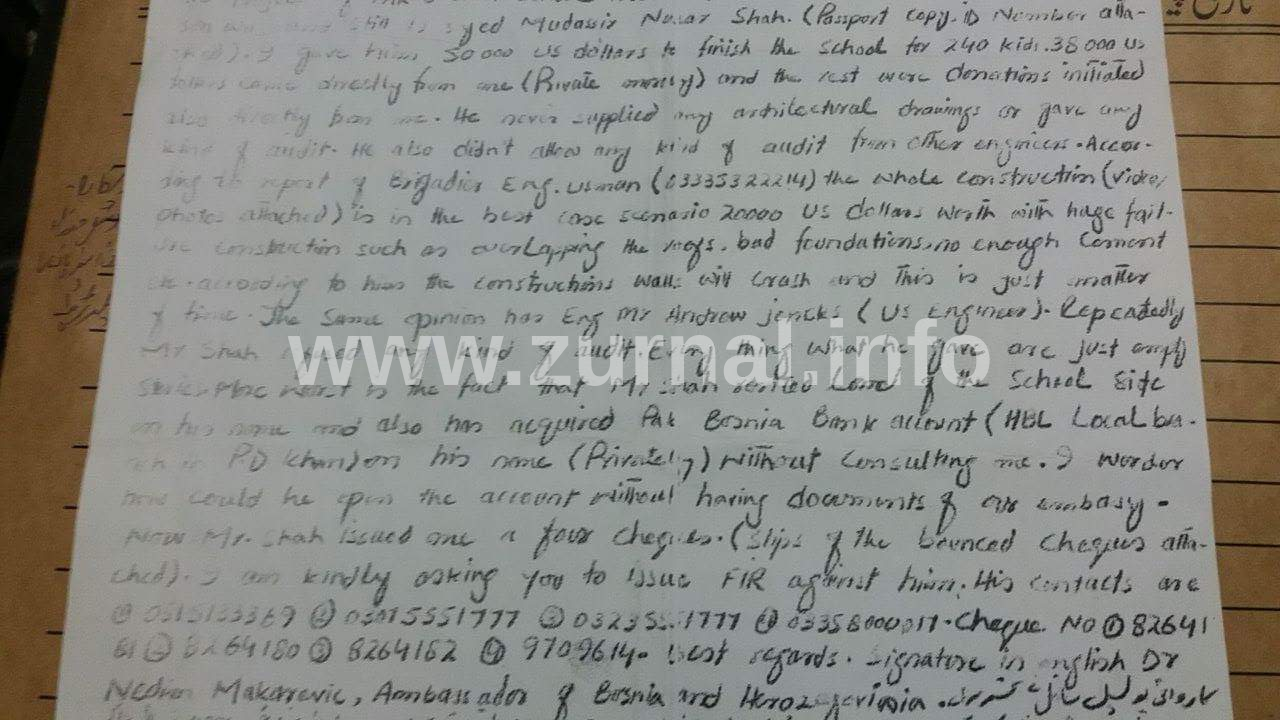 تاریخ
is Syed Mudassir Nasar Shah. (Passport copy. ID Nember atta-
ched). I gave him 50 000 US dollars to finish the school for 240 kids. 38 000 US
dollars came directly from me (Private money) and the rest were donations initiated
also directly from me. He never supplied any architectural drawings or gave any
kind of audit. He also didn't allow any kind of audit from other engineers. Accor-
ding to report of Brigadier Eng. Usman (03335322214) the whole construction (video,
photos attached) is in the best case scenario 20000 US dollars worth with huge fail-
ure construction such as overlapping the roofs, bad foundations, no enough cement
according to him the constructions walls will crash and this is just matter
of time. The same opinion has Eng Mr Andrew jencks (US Engineer). Repeatedly
Mr Shah any kind of audit. Every thing what he gave are just empty
is the fact that Mr Shah land of the School Site
on his name and also has acquired Pak Bosnia Bank account (HBL Local bra-
PD khan) on his name (Privately) without consulting me. I wonder
how could he open the account without having documents of our embasy.
Now Mr. Shah issued me a four cheques. (Slips of the bounced cheques atta-
ched). I am kindly asking you to issue FIR against him. His contacts are
0515153369 ② 03015551777 ③ ④ Cheque No ① 82641
② 8264180 ③ 8264182 ④ 9709614. best regards. Signature in english Dr
Nedim Makarevic, Ambassador of Bosnia and Herozegovinia.
www.zurnal.info